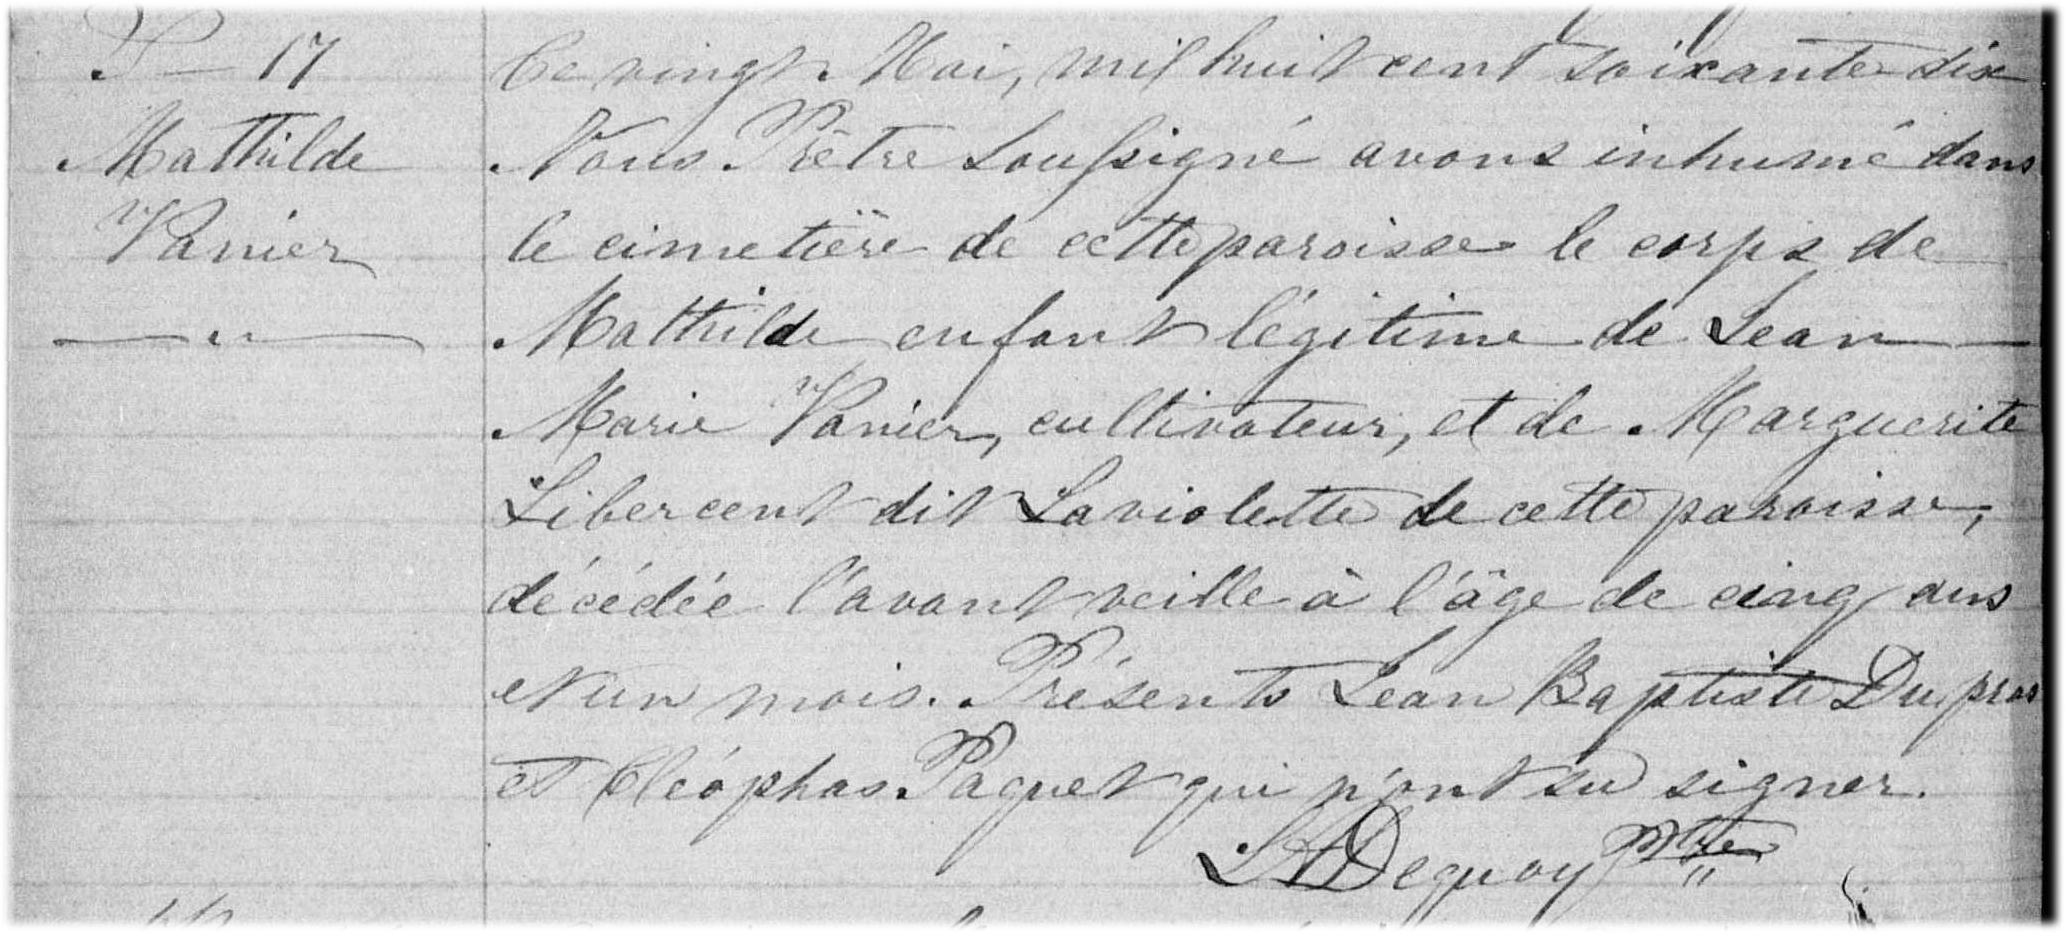 S — 17
Mathilde
Vanier
Ce vingt Mai, mil huit cent soixante dix
Nous Prêtre Soussigné avons inhumé dans
le cimetière de cette paroisse le corps de
Mathilde enfant légitime de Jean
Marie Vanier, cultivateur, et de Marguerite
Libercent dit Laviolette de cette paroisse,
décédée l'avant veille à l'âge de cinq ans
et un mois. Présents Jean Baptiste Dupras
et Cléophas Paquet qui n'ont su signer.
Dequoy Ptre